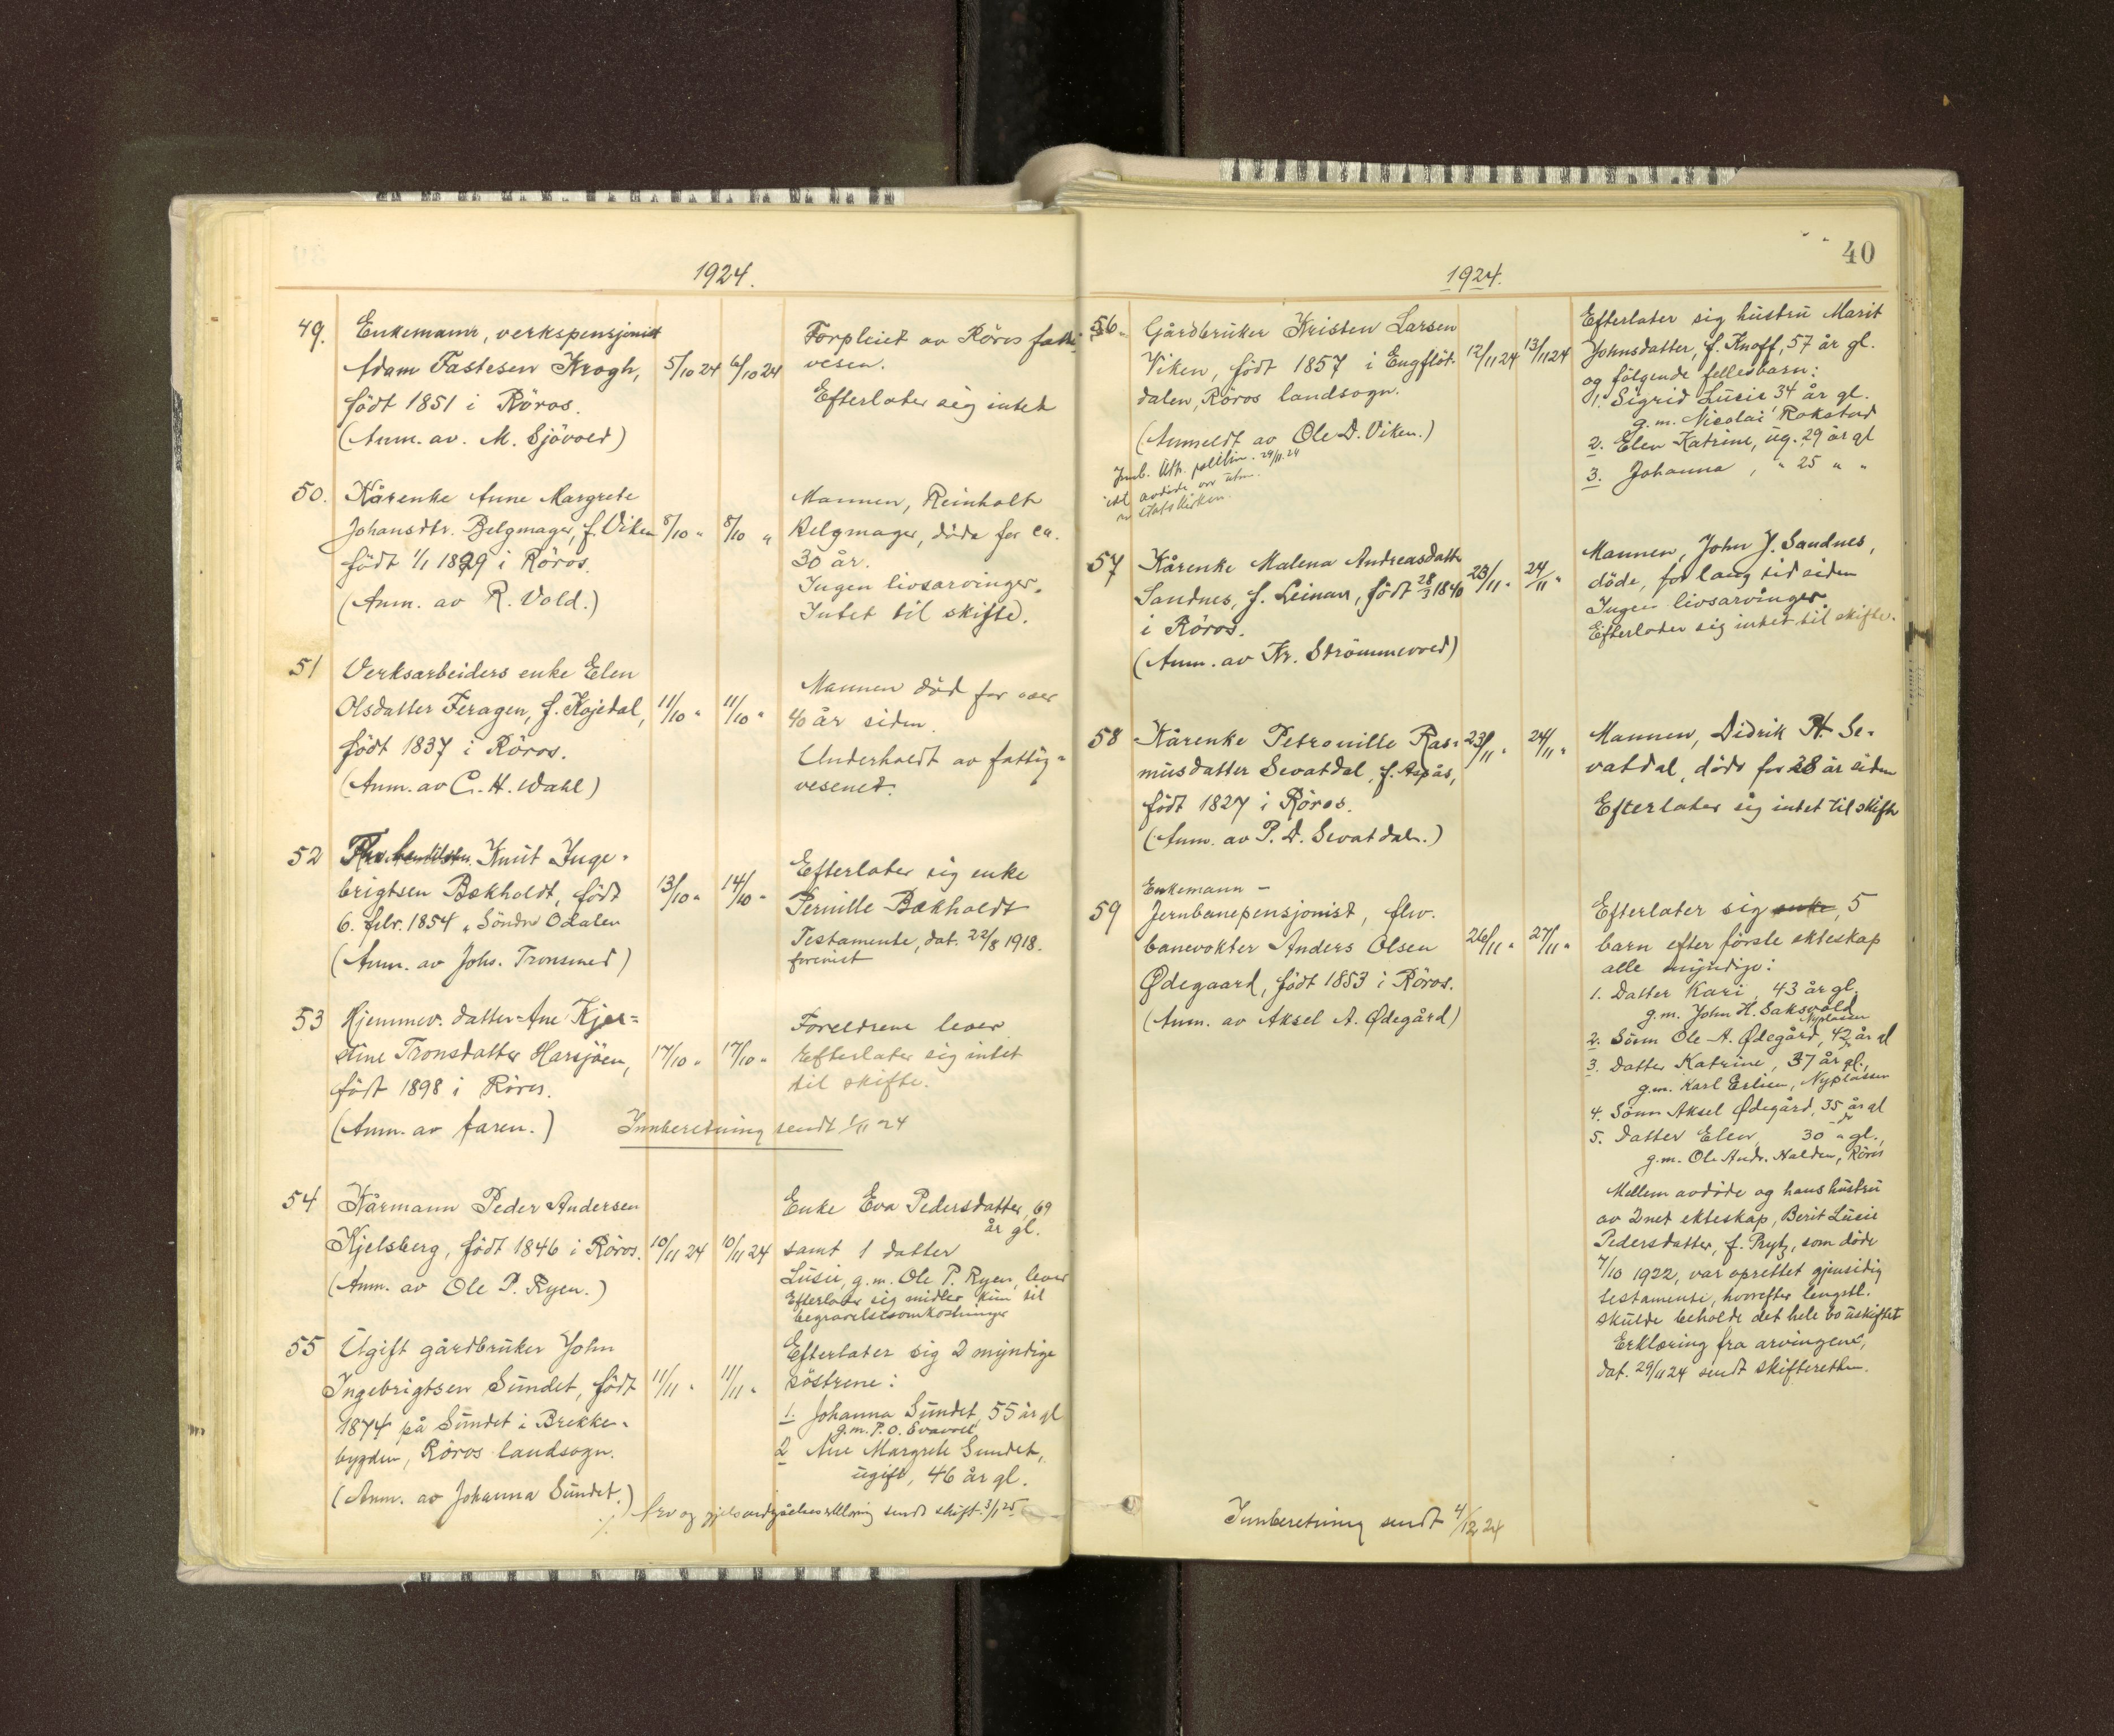 1924.
49. Enkemann, verkspensjonist
Adam Fastesen Krogh, 5/10 24 6/10 24
födt 1851 i Röros.
(Anm. av. M. Sjövold)
Forpleiet av Röros fatti-
vesen.
Efterlater sig intet
50. Kårenke Anne Margrete
Johansdtr. Belgmager, f. Viken 8/10 " 8/10 "
födt 1/1 1829 i Röros.
(Anm. av R. Vold.)
Mannen, Reinholt
Belgmager, döde for ca.
30 år.
Ingen livsarvinger.
Intet til skifte.
51 Verksarbeiders enke Elen
Olsdatter Feragen, f. Kojedal, 11/10 " 11/10 "
födt 1837 i Röros.
(Anm. av C. H. Wahl)
Mannen död for over
40 år siden.
Underholdt av fattig-
vesenet.
52 Knut Inge-
brigtsen Bækholdt, födt 13/10 " 14/10 "
6. febr. 1854 " Söndre Odalen
(Anm. av Johs. Tronsmed)
Efterlater sig enke
Pernille Bækholdt
Testamente, dat. 22/8 1918.
forevist
53 Hjemmev. datter Ane Kjer-
stine Tronsdatter Harsjöen, 17/10 " 17/10 "
födt 1898 i Röros.
(Anm. av faren.)
Foreldrene lever
Efterlater sig intet
til skifte.
Innberetning sendt 1/11 24
54 Kårmann Peder Andersen
Kjelsberg, födt 1846 i Röros. 10/11 24 10/11 24
(Anm. av Ole P. Ryen.)
Enke Eva Pedersdatter, 69
år gl.
samt 1 datter
Lusie, g.m. Ole P. Ryen, lever
Efterlater sig midler kun til
begravelsesomkostninger
55 Ugift gårdbruker John
Ingebrigtsen Sundet, födt 11/11 " 11/11 "
1874 på Sundet i Brekke-
bygden, Röros landsogn.
(Anm. av Johanna Sundet.)
Efterlater sig 2 myndige
söstrene:
1. Johanna Sundet, 55 år gl
g.m. P.O. Evavold
2 Ane Margrete Sundet,
ugift, 46 år gl.
Arv og gjelsvedgåelseserklæring sendt skift. 3/1 25
40
1924.
56 Gårdbruker Kristen Larsen
Viken, födt 1857 i Engflöt- 12/11 24 13/11 24
dalen, Röros landsogn.
(Anmeldt av Ole D. Viken.)
24/11 24
Efterlater sig hustru Marit
Johnsdatter, f. Knoff, 57 år gl.
og fölgende fellesbarn:
1. Sigrid Lusie 34 år gl.
g.m. Nicolai Rokstad
2. Elen Katrine, ug. 29 år gl
3. Johanna, " 25 " "
57 Kårenke Malena Andreasdatter
Sandnes, f. Leinan, födt 28/3 1840 23/11 " 24/11 "
i Röros.
(Anm. av Kr. Strömmevold)
Mannen, John J. Sandnes,
döde, for lang tid siden
Ingen livsarvinger.
Efterlater sig intet til skifte.
58 Kårenke Petronille Ras- 23/11 " 24/11 "
musdatter Sevatdal, f. Aspås,
födt 1827 i Röros.
(Anm. av P. D. Sevatdal.)
Mannen, Didrik P. Se-
vatdal, döde for 28 år siden
Efterlater sig intet til skifte
Enkemann -
59 Jernbanepensjonist, flw.
banevokter Anders Olsen 26/11 " 27/11 "
Ødegaard, födt 1853 i Röros.
(Anm. av Aksel A. Ødegård)
Efterlater sig enke, 5
barn efter förste ekteskap
alle myndige:
1. Datter Kari, 43 år gl.
g.m. John H. Saksvold
Nyplassen
2. Sönn Ole A. Ødegård, 42 år gl
3. Datter Katrine, 37 år gl.,
g.m. Karl Erlien, Nyplassen
4. Sönn Aksel Ødegård, 35 år gl
5. Datter Elen, 30 " gl.,
g.m. Ole Andr. Halden, Röros
Mellem avdöde og hans hustru
av 2net ekteskap, Berit Lusie
Pedersdatter, f. Prytz, som döde
7/10 1922, var oprettet gjensidig
testamente, hvorefter lengstl.
skulde beholde det hele bo uskiftet
Erklæring fra arvingene,
dat. 29/11 24 sendt skifteretten.
Innberetning sendt 4/12 24